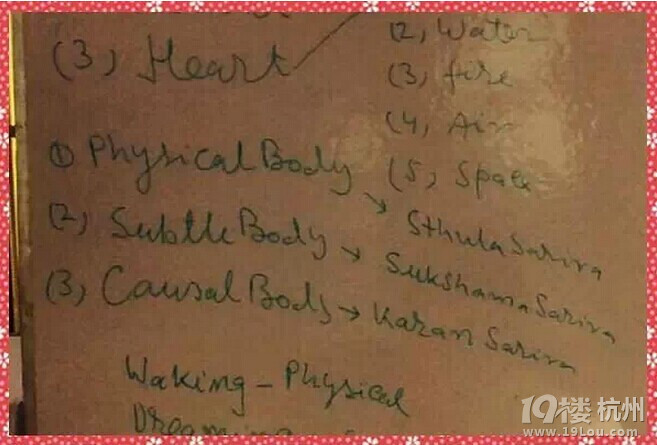 (2) Water
(3) Heart
(3) fire
(4) Air
(5) Space
① Physical Body → Sthula Sarira
(2) Subtle Body → Sukshama Sarira
(3) Causal Body → Karan Sarira
Waking - Physical
Dreaming
19楼 杭州
www.19lou.com